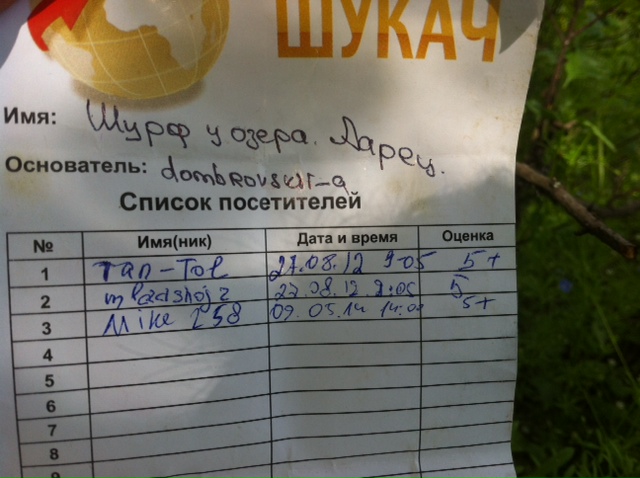 ШУКАЧ
Имя: Шурф у озера. Ларец.
Основатель: dombrovskii-a
Список посетителей
№ Имя(ник) Дата и время Оценка
1 Tan-Tol 27.08.12 9-05 5+
2 27.08.12. 9:05 5
3 Mike 258 09.05.14 14:00 5+
4
5
6
7
8
9